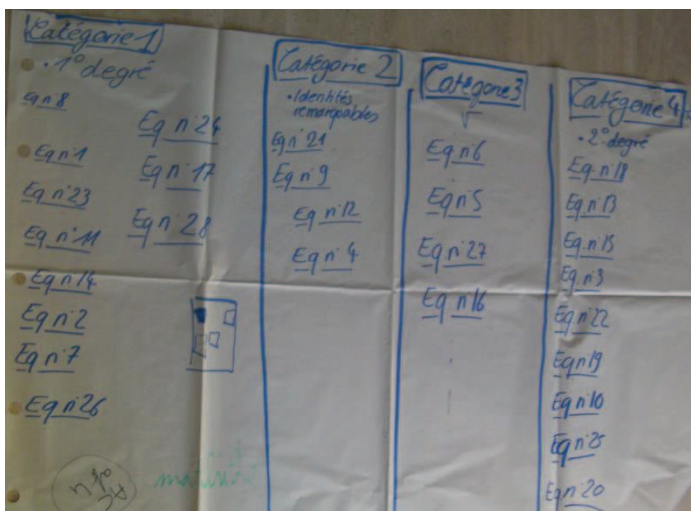 Catégorie 1
• 1° degré
eq n 8
Eq n° 1
Eq n° 23
Eq n° 11
Eq n° 14
Eq n° 2
Eq n° 7
Eq n° 26
Eq n° 24
Eq n° 17
Eq n° 28
Catégorie 2
• Identités
remarquables
Eq n° 21
Eq n° 9
Eq n° 12
Eq n° 4
Catégorie 3
√
Eq n° 6
Eq n° 5
Eq n° 27
Eq n° 16
Catégorie 4
• 2° degré
Eq n° 18
Eq n° 13
Eq n° 15
Eq n° 3
Eq n° 22
Eq n° 19
Eq n° 10
Eq n° 25
Eq n° 20